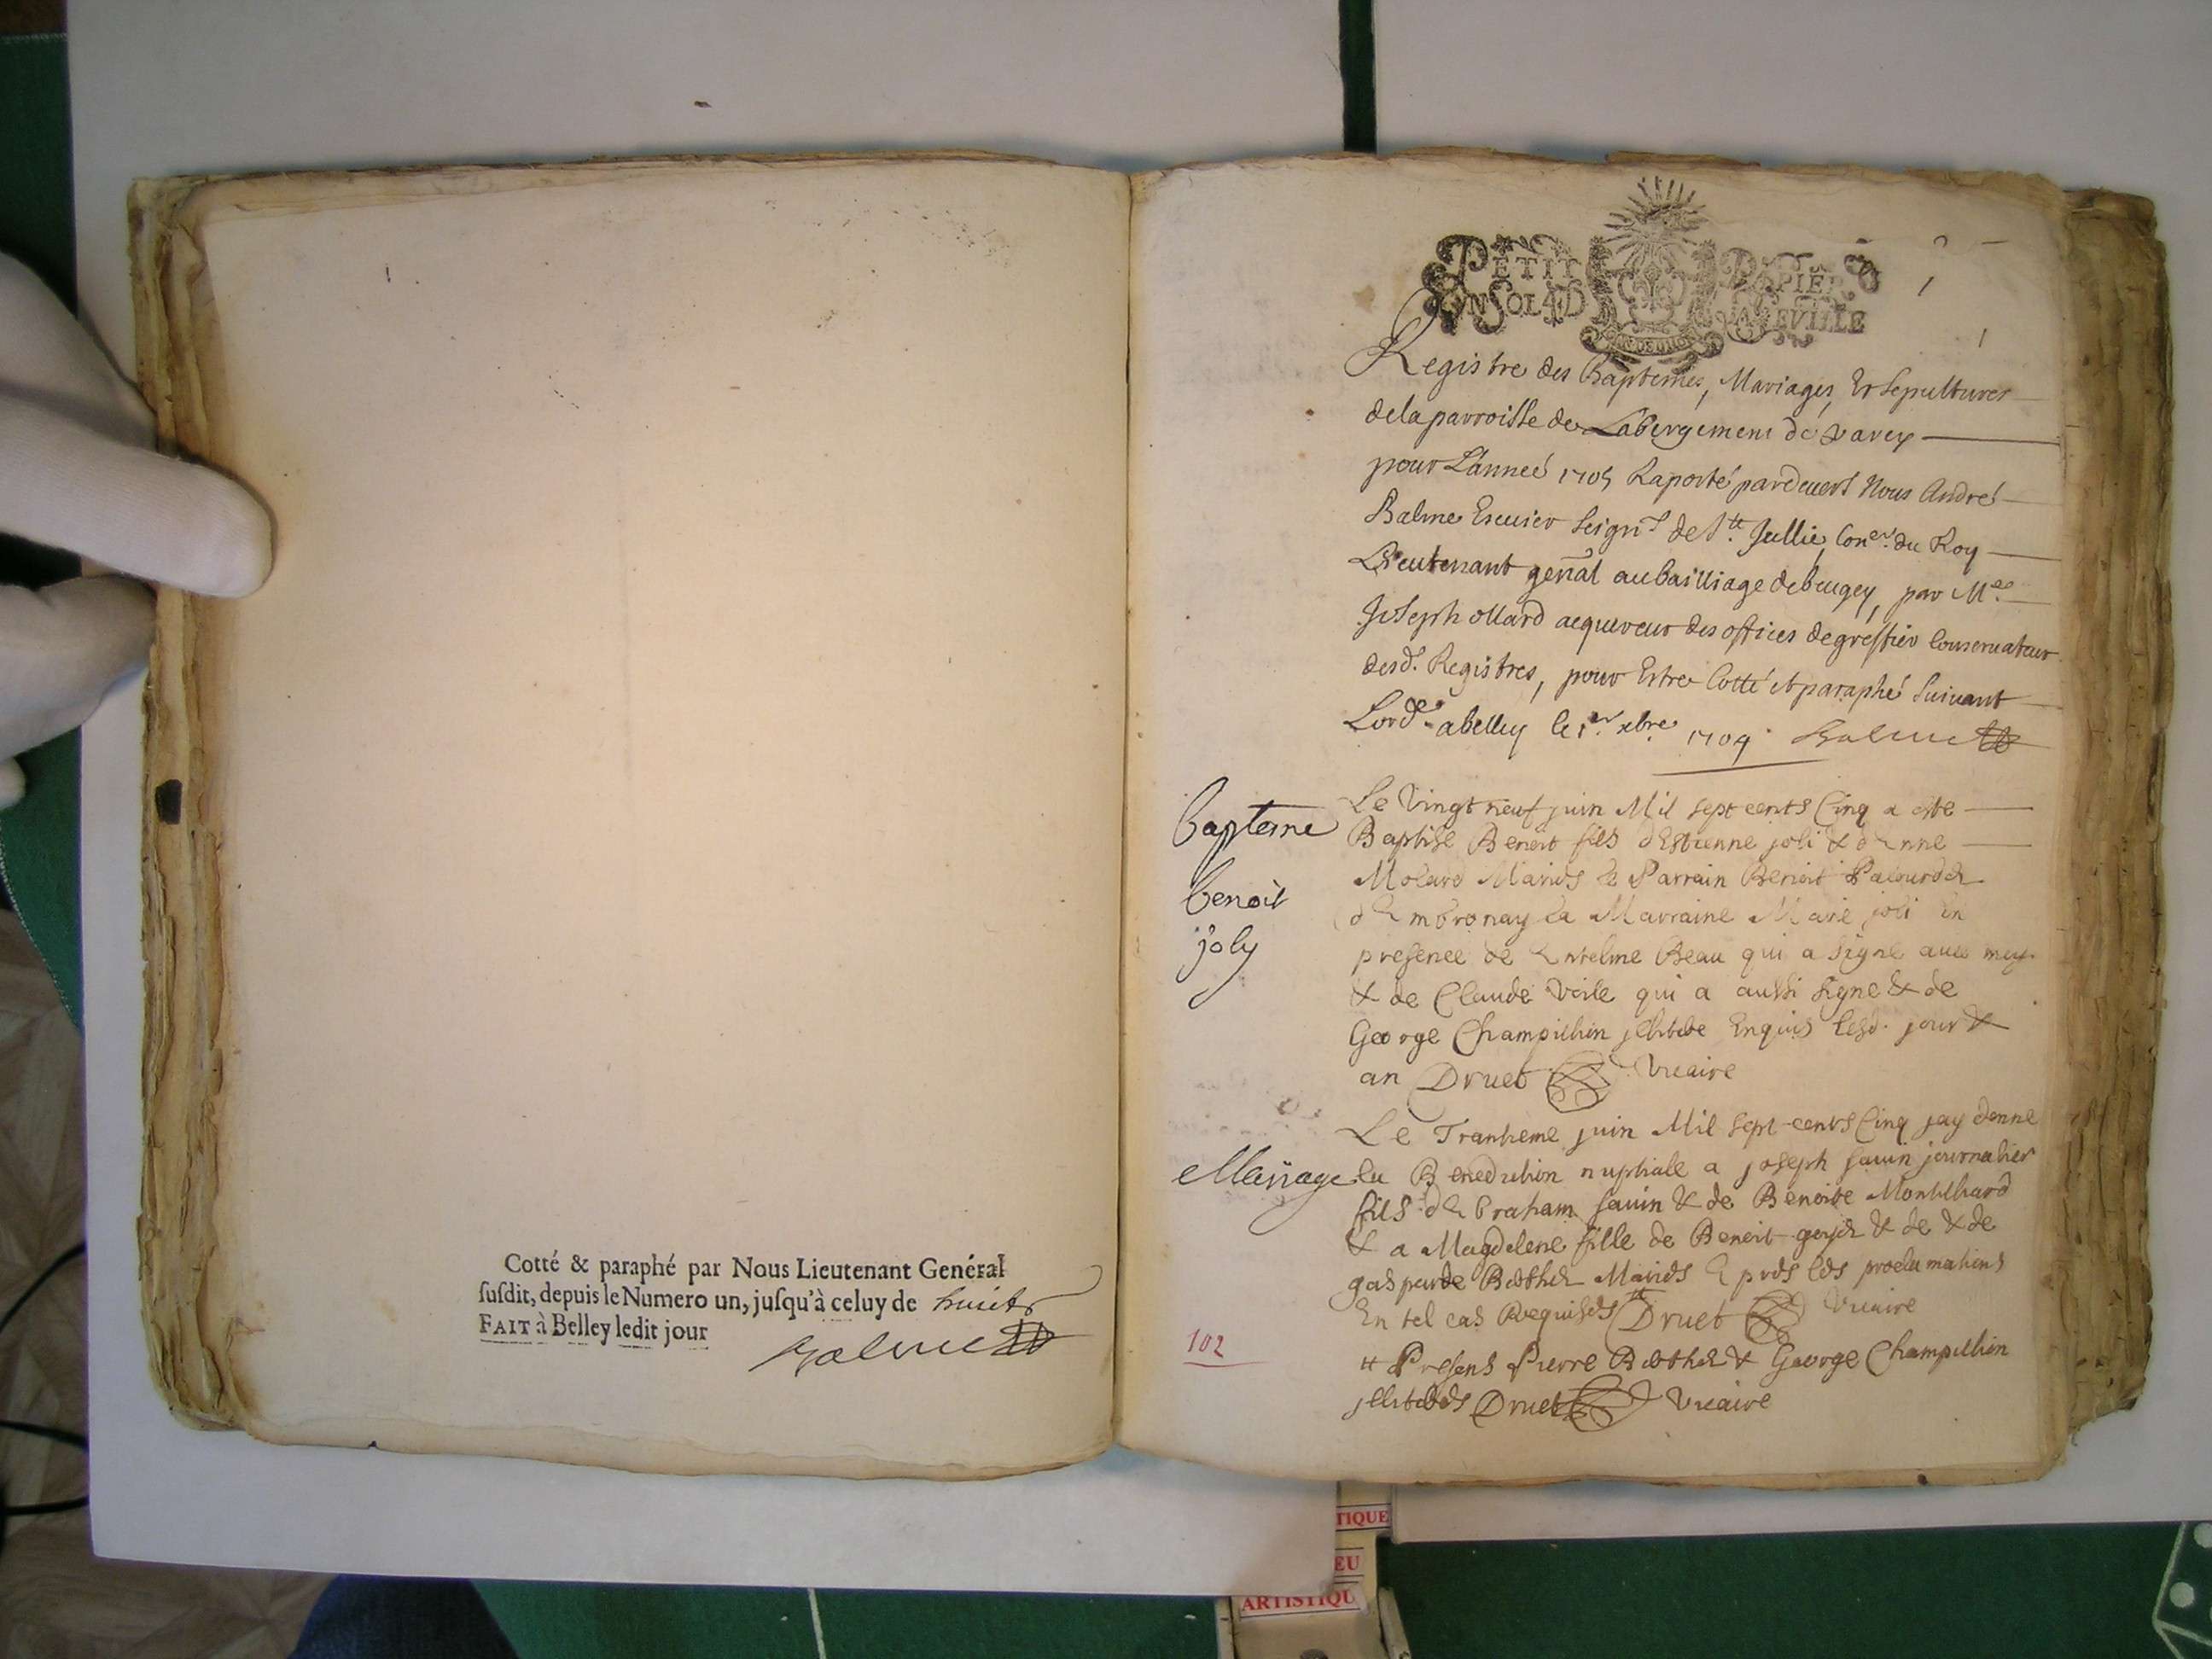 Cotté & paraphé par Nous Lieutenant Genéral
susdit, depuis le Numero un, jusqu'à celuy de huict
FAIT à Belley ledit jour
Balme
PETIT PAPIER
1
1
Registre des Baptemes, Mariages, Et Sepultures
de la parroisse de Labergement de Varey
pour L'anneé 1705 Raporté pardevers Nous André
Balme Escuier Seignr de Ste Jullie, Coner du Roy
Lieutenant genal au bailliage de beugey, par Me
Joseph ollard acquereur des offices de greffier Conservateur
desd. Registres, pour Estre Cotté et paraphé Suivant
Lorde a belley le 1er xbre 1704 Balme
Bapteme
benoit
joly
Le Vingt neuf juin Mil sept cents Cinq a este
Baptise Benoit fils dEstienne joli & dAnne
Molard Mariés le Parrain Benoit
dAmbronay la Marraine Marie joli En
presence de Antelme Beau qui a signe avec moy
& de Claude qui a aussi signe & de
George Champillion jllitere Enquis lesd. jour &
an Druet Vicaire
Mariage
Le Trantieme juin Mil sept cents Cinq jay donne
la Benediction nuptiale a joseph savin journalier
fils dAbraham savin & de Benoite Montilliard
& a Magdelene fille de Benoit & de & de
gasparde Mariés Aprés les proclamations
En tel cas Requises # Druet Vicaire
# Presens Pierre & George Champillion
jlliterés Druet Vicaire
102
TIQUE
EU
ARTISTIQU